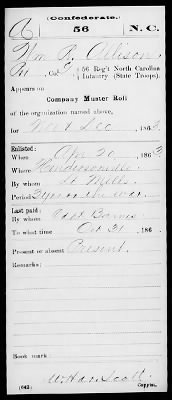 (Confederate.)
56 N.C.
Wm P. Allison
Pvt, Co. 56 Reg't North Carolina
Infantry (State Troops).
Appears on
Company Muster Roll
of the organization named above,
for Nov & Dec , 1863.
Enlisted:
When Apr 20 , 1863.
Where Hendersonville
By whom Lt Mills
Period 3 years or the war
Last paid:
By whom Capt Barnes
To what time Oct 31 , 186
Present or absent Present.
Remarks:
Book mark:
(642) Copyist.